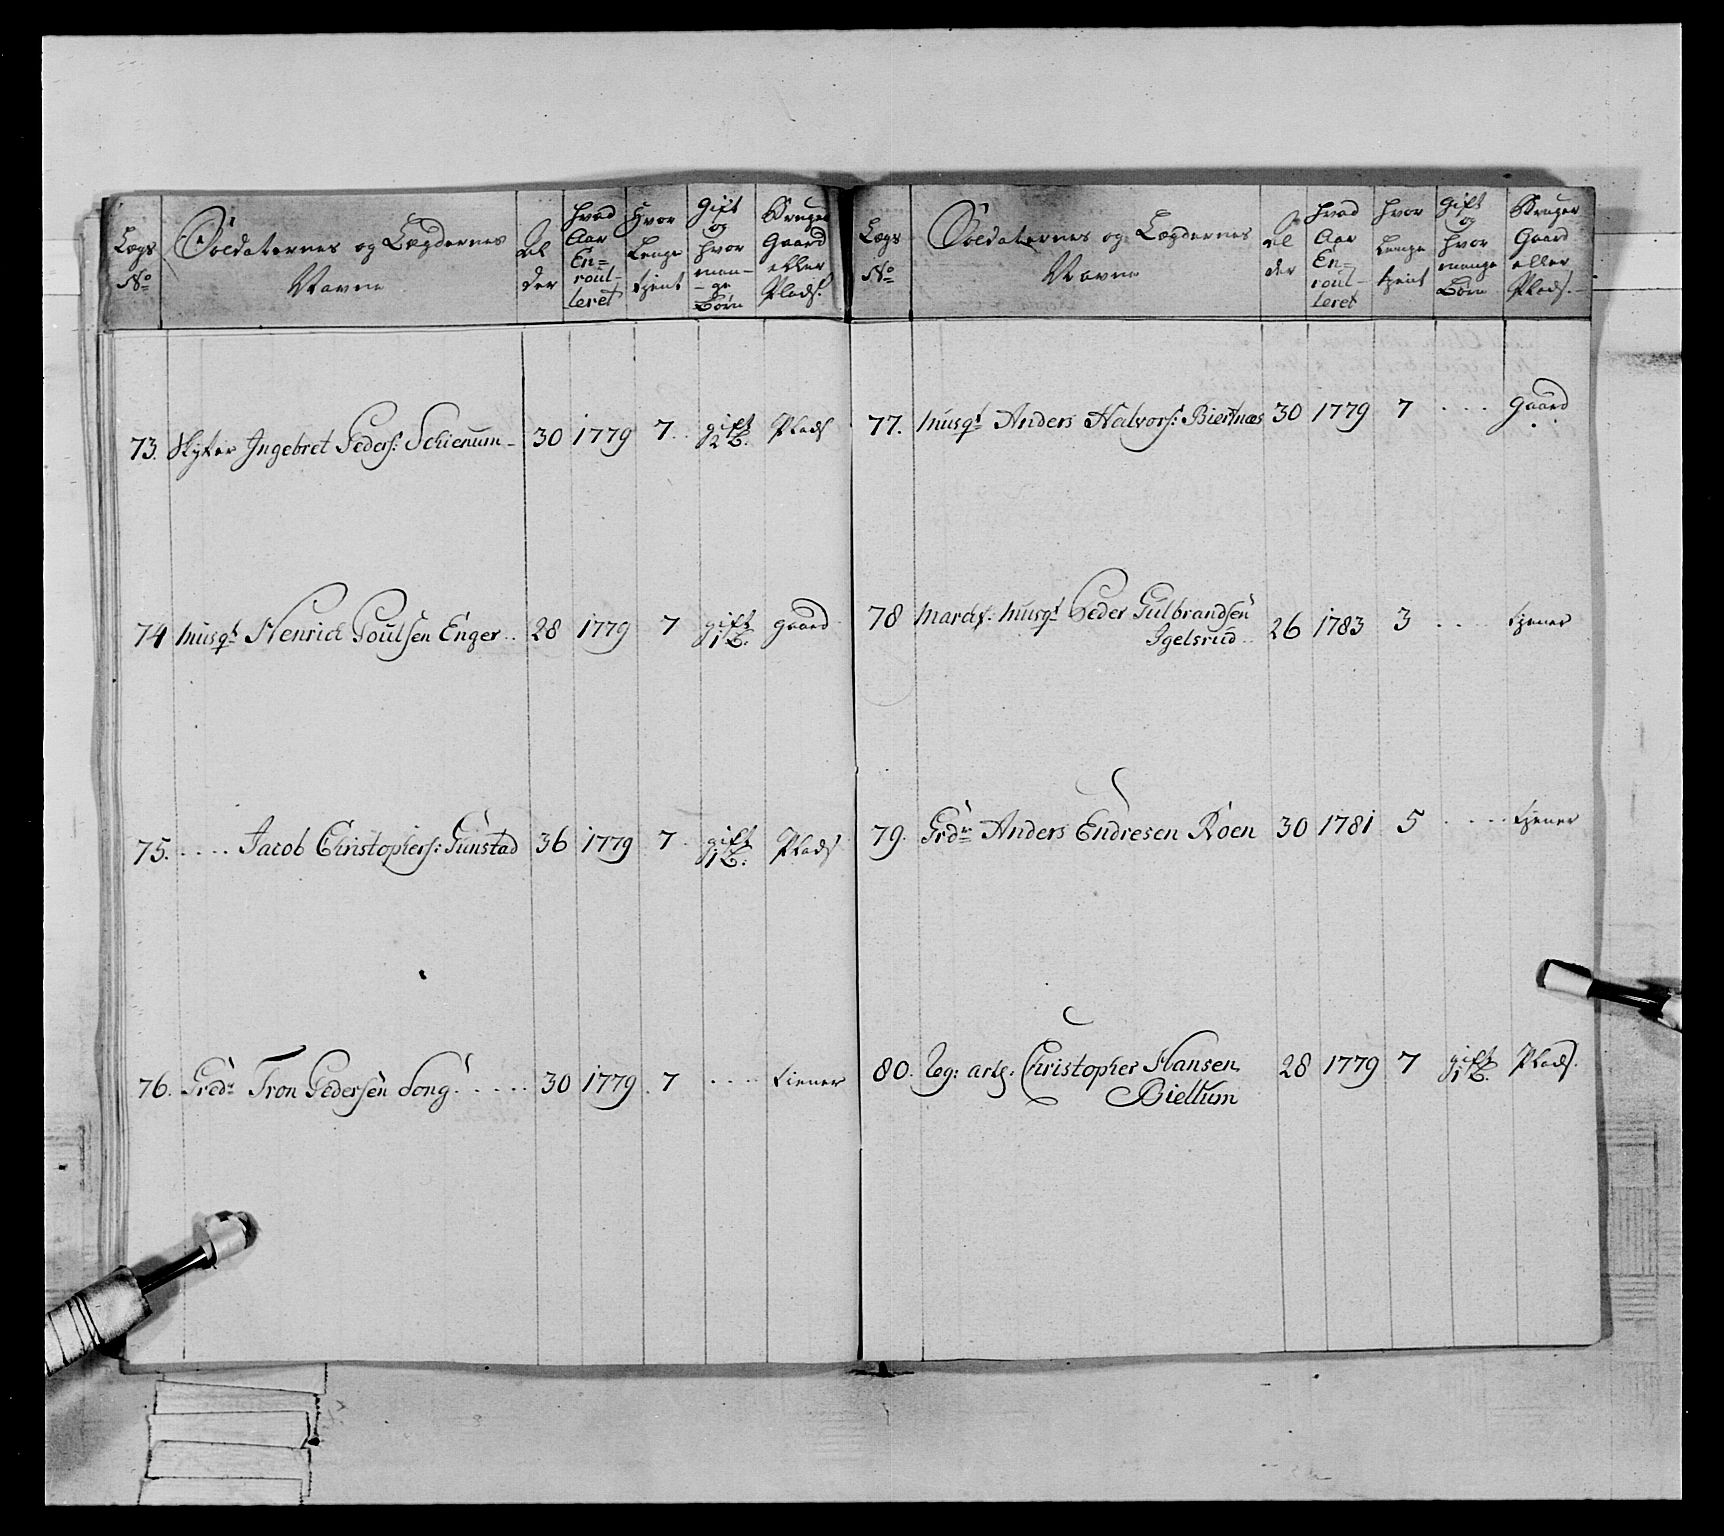 Lægs No | Soldaternes og Lægdernes Navne | Alder | Hvad Aar Enroulleret | Hvor Lenge tjent | Gift og hvor mange Børn | Bruger Gaard eller Plads.
73. Skytter Ingebret Peders: Schienum 30 1779 7 gift 2 B. Plads
74 Musqt Henrich Poulsen Enger 28 1779 7 gift 1 B. gaard
75. .... Jacob Christophers: Gunstad 36 1779 7 gift 1 B. Plads
76. Gredr Tron Pedersen Song ..... 30 1779 7 .... tiener
Lægs No | Soldaternes og Lægdernes Navne | Alder | Hvad Aar Enroulleret | Hvor Lenge tjent | Gift og hvor mange Børn | Bruger Gaard eller Plads.
77. Musqt Anders Halvors: Biertnæs 30 1779 7 .... gaard
78 March: Musqt Peder Gulbrandsen
Igelsrud .. 26 1783 3 .... tjener
79. Grdr Anders Endresen Roen 30 1781 5 .... tjener
80. Reg: artl. Christopher Hansen
Bieltum 28 1779 7 gift 1 B. Plads.